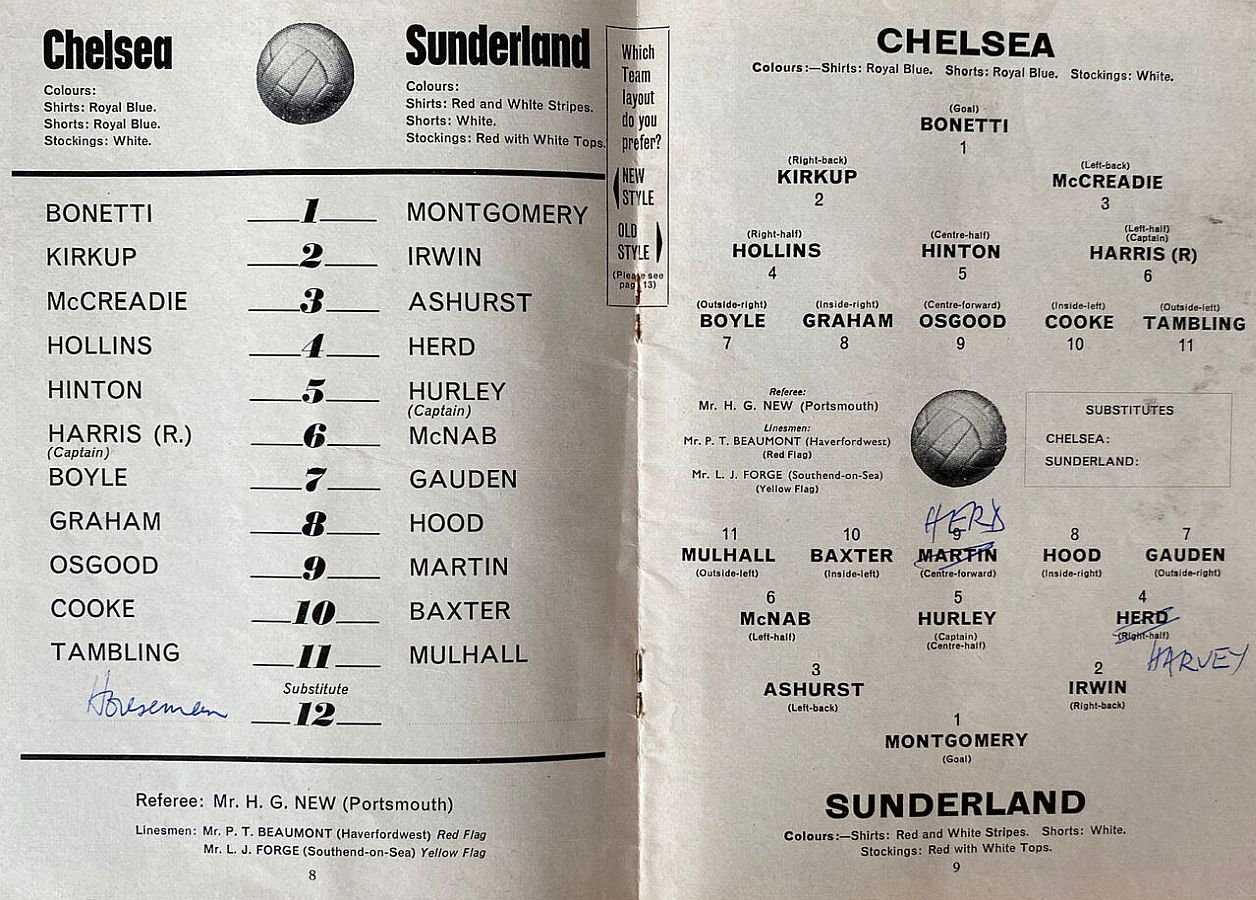 Chelsea
Colours:
Shirts: Royal Blue.
Shorts: Royal Blue.
Stockings: White.
Sunderland
Colours:
Shirts: Red and White Stripes.
Shorts: White.
Stockings: Red with White Tops.
BONETTI 1 MONTGOMERY
KIRKUP 2 IRWIN
McCREADIE 3 ASHURST
HOLLINS 4 HERD
HINTON 5 HURLEY
(Captain)
HARRIS (R.) 6 McNAB
(Captain)
BOYLE 7 GAUDEN
GRAHAM 8 HOOD
OSGOOD 9 MARTIN
COOKE 10 BAXTER
TAMBLING 11 MULHALL
Substitute
Houseman 12
Referee: Mr. H. G. NEW (Portsmouth)
Linesmen: Mr. P. T. BEAUMONT (Haverfordwest) Red Flag
Mr. L. J. FORGE (Southend-on-Sea) Yellow Flag
8
Which
Team
layout
do you
prefer?
NEW
STYLE
OLD
STYLE
(Please see
page 13)
CHELSEA
Colours:—Shirts: Royal Blue. Shorts: Royal Blue. Stockings: White.
(Goal)
BONETTI
1
(Right-back) (Left-back)
KIRKUP McCREADIE
2 3
(Left-half)
(Right-half) (Centre-half) (Captain)
HOLLINS HINTON HARRIS (R)
4 5 6
(Outside-right) (Inside-right) (Centre-forward) (Inside-left) (Outside-left)
BOYLE GRAHAM OSGOOD COOKE TAMBLING
7 8 9 10 11
Referee:
Mr. H. G. NEW (Portsmouth)
Linesmen:
Mr. P. T. BEAUMONT (Haverfordwest)
(Red Flag)
Mr. L. J. FORGE (Southend-on-Sea)
(Yellow Flag)
SUBSTITUTES
CHELSEA:
SUNDERLAND:
HERD
11 10 9 8 7
MULHALL BAXTER MARTIN HOOD GAUDEN
(Outside-left) (Inside-left) (Centre-forward) (Inside-right) (Outside-right)
6 5 4
McNAB HURLEY HERD
(Left-half) (Captain) (Right-half)
(Centre-half)
HARVEY
3 2
ASHURST IRWIN
(Left-back) (Right-back)
1
MONTGOMERY
(Goal)
SUNDERLAND
Colours:—Shirts: Red and White Stripes. Shorts: White.
Stockings: Red with White Tops.
9